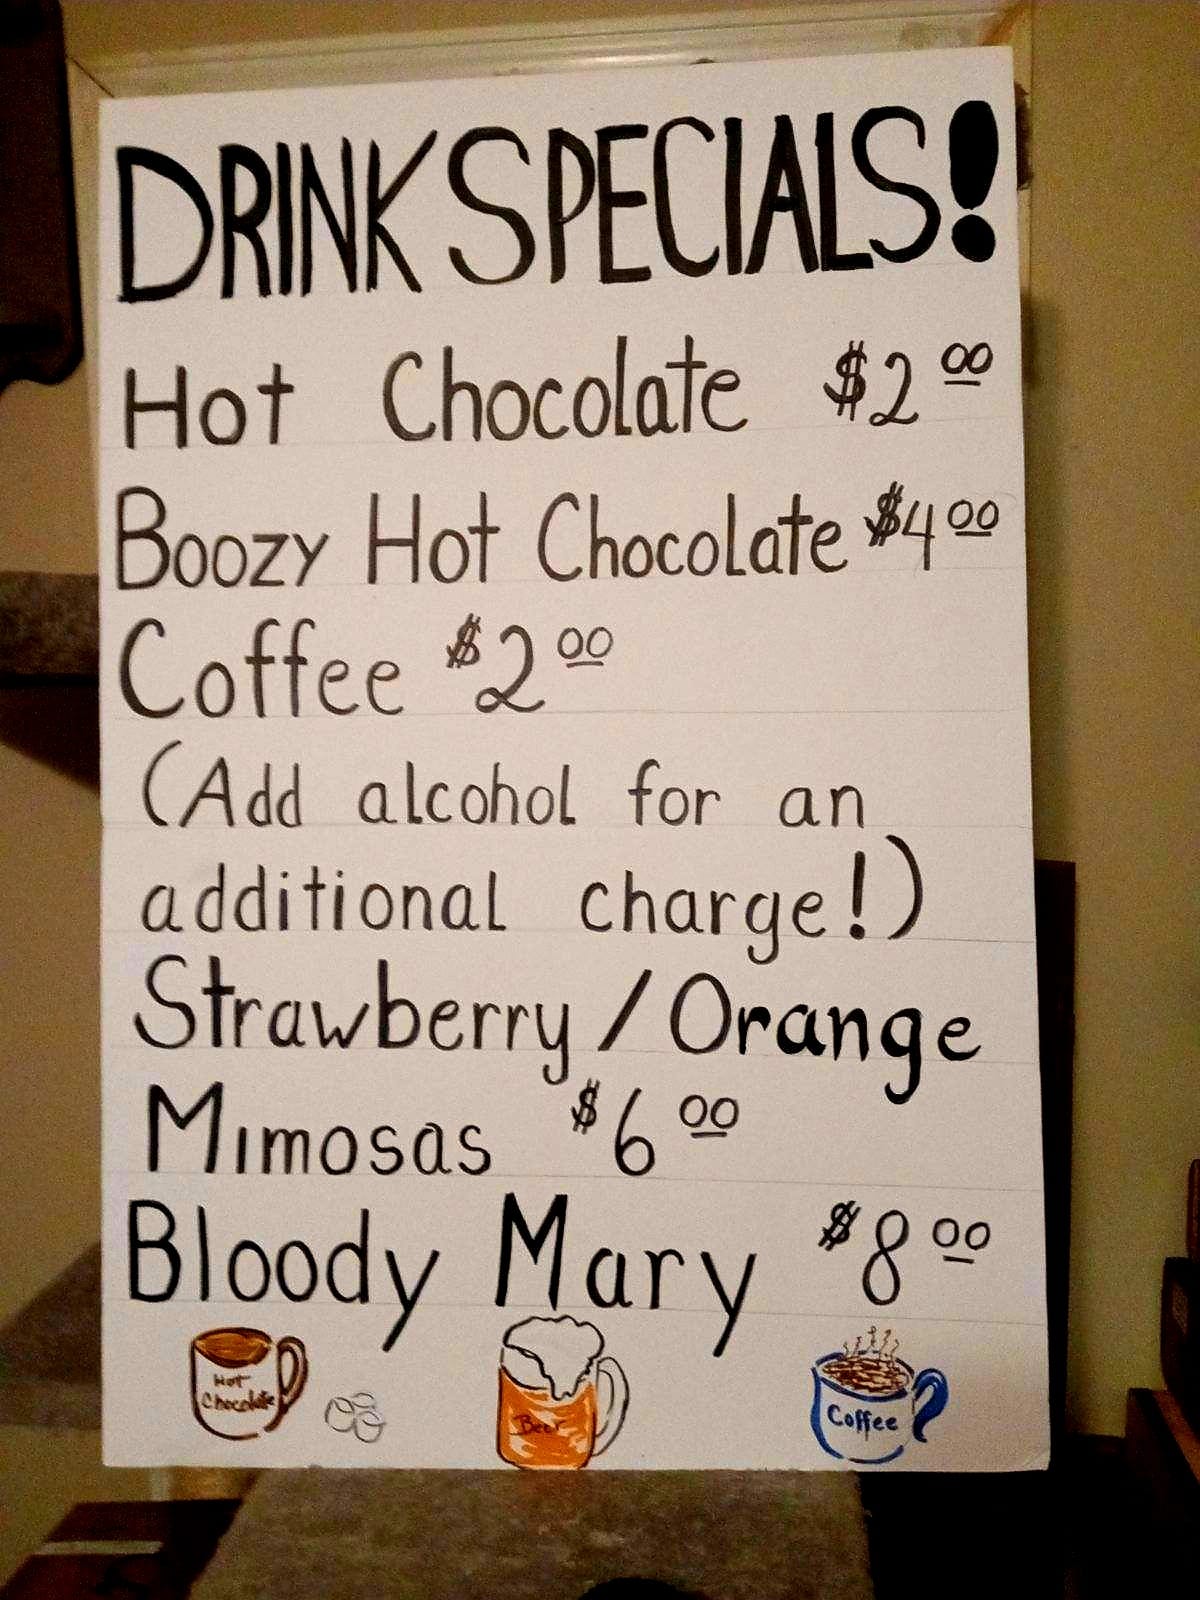 DRINK SPECIALS!
Hot Chocolate $2 00
Boozy Hot Chocolate $4 00
Coffee $2 00
(Add alcohol for an
additional charge!)
Strawberry / Orange
Mimosas $6 00
Bloody Mary $8 00
Hot
Chocolate
Beer
Coffee